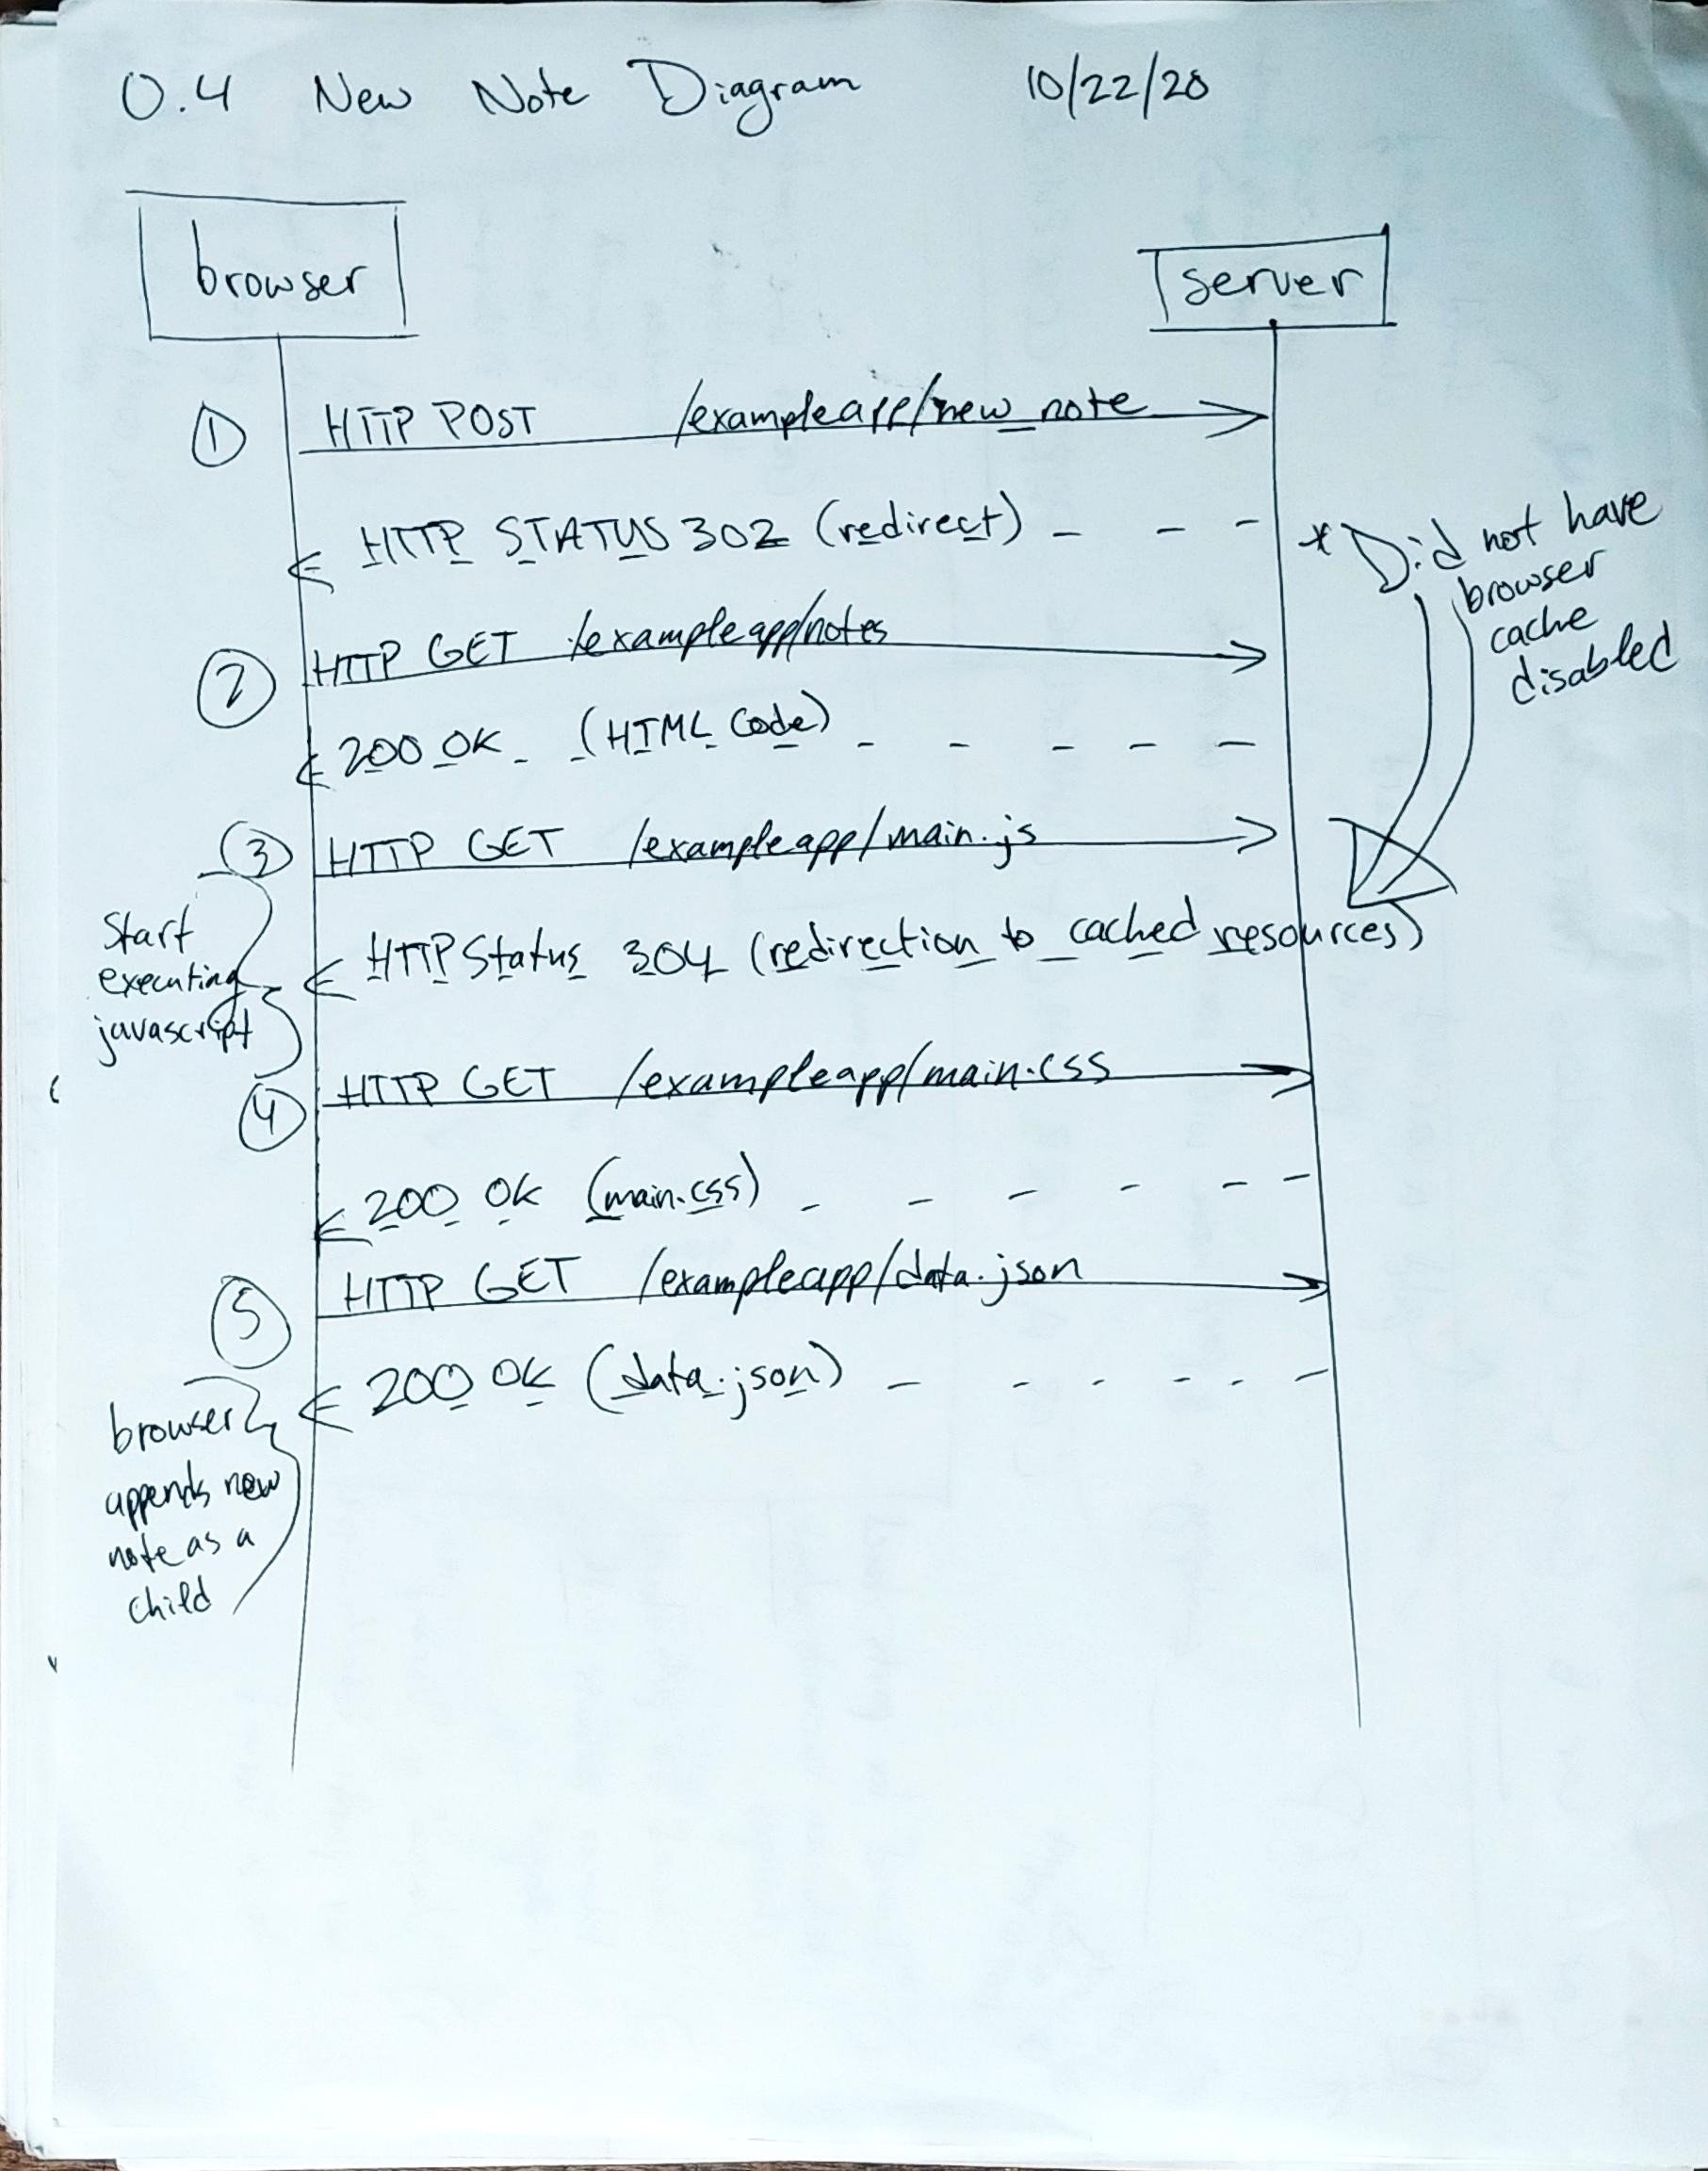 0.4 New Note Diagram 10/22/20
browser
server
1 HTTP POST /exampleapp/new_note
HTTP STATUS 302 (redirect)
* Did not have
browser
cache
disabled
2 HTTP GET /exampleapp/notes
200 OK (HTML Code)
3 HTTP GET /exampleapp/main.js
Start
executing
javascript
HTTP Status 304 (redirection to cached resources)
4 HTTP GET /exampleapp/main.css
200 OK (main.css)
5 HTTP GET /exampleapp/data.json
200 OK (data.json)
browser
appends new
note as a
child